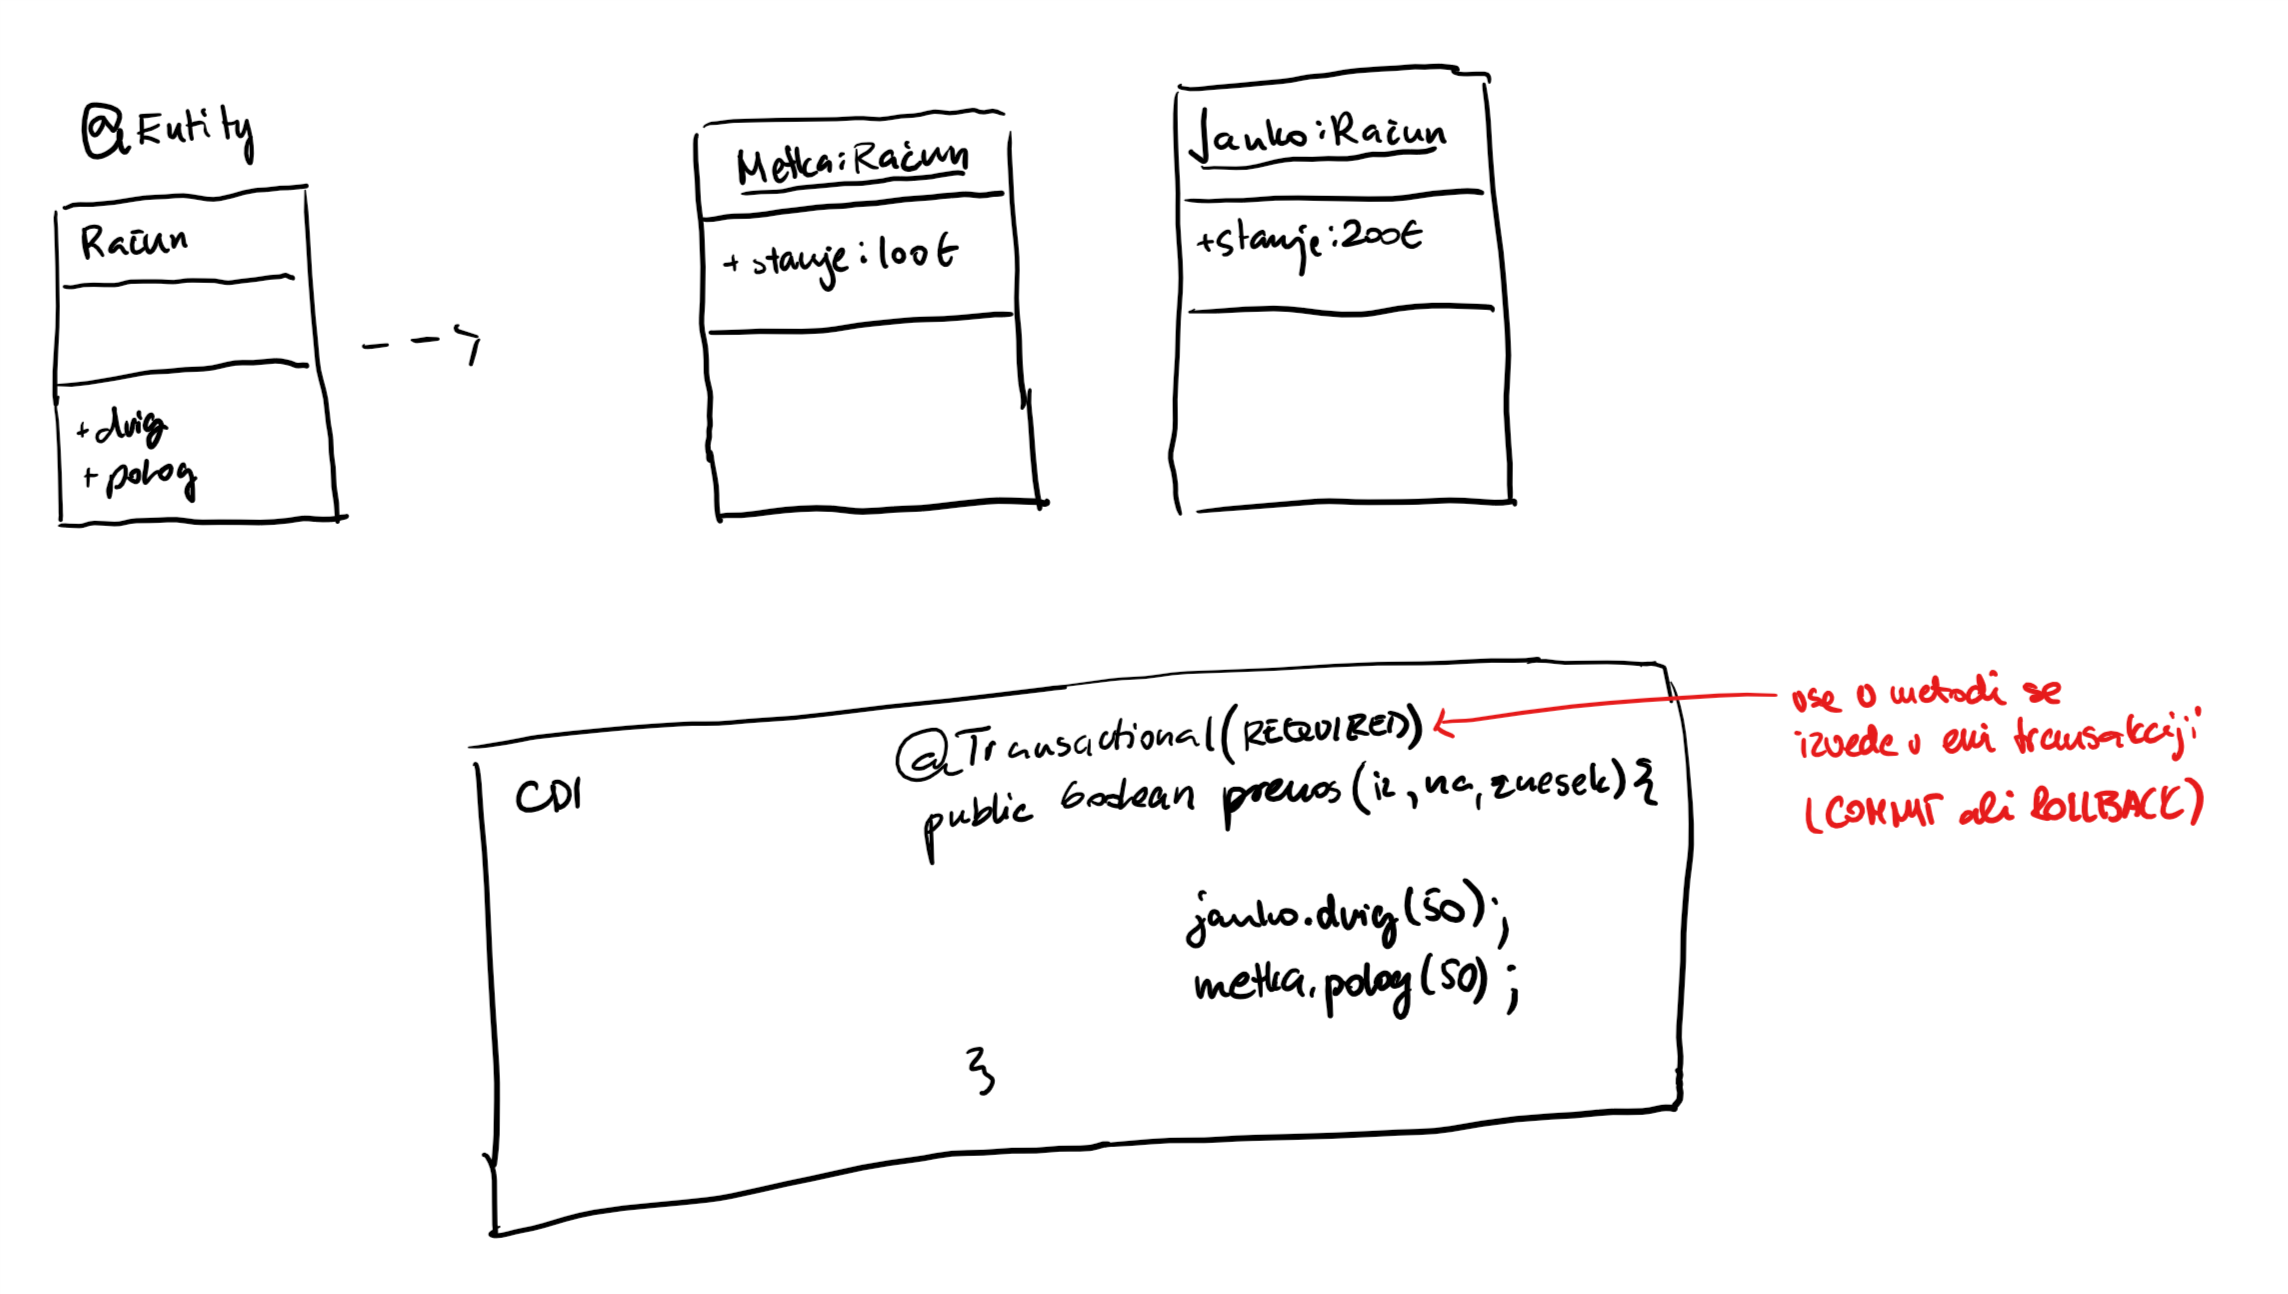 @Entity
Račun
+ dvig
+ polog
Metka:Račun
+ stanje: 100€
Janko:Račun
+stanje:200€
CDI
@Transactional(REQUIRED)
public boolean prenos(iz, na, znesek) {
janko.dvig(50);
metka.polog(50);
}
vse v metodi se
izvede v eni transakciji
(COMMIT ali ROLLBACK)